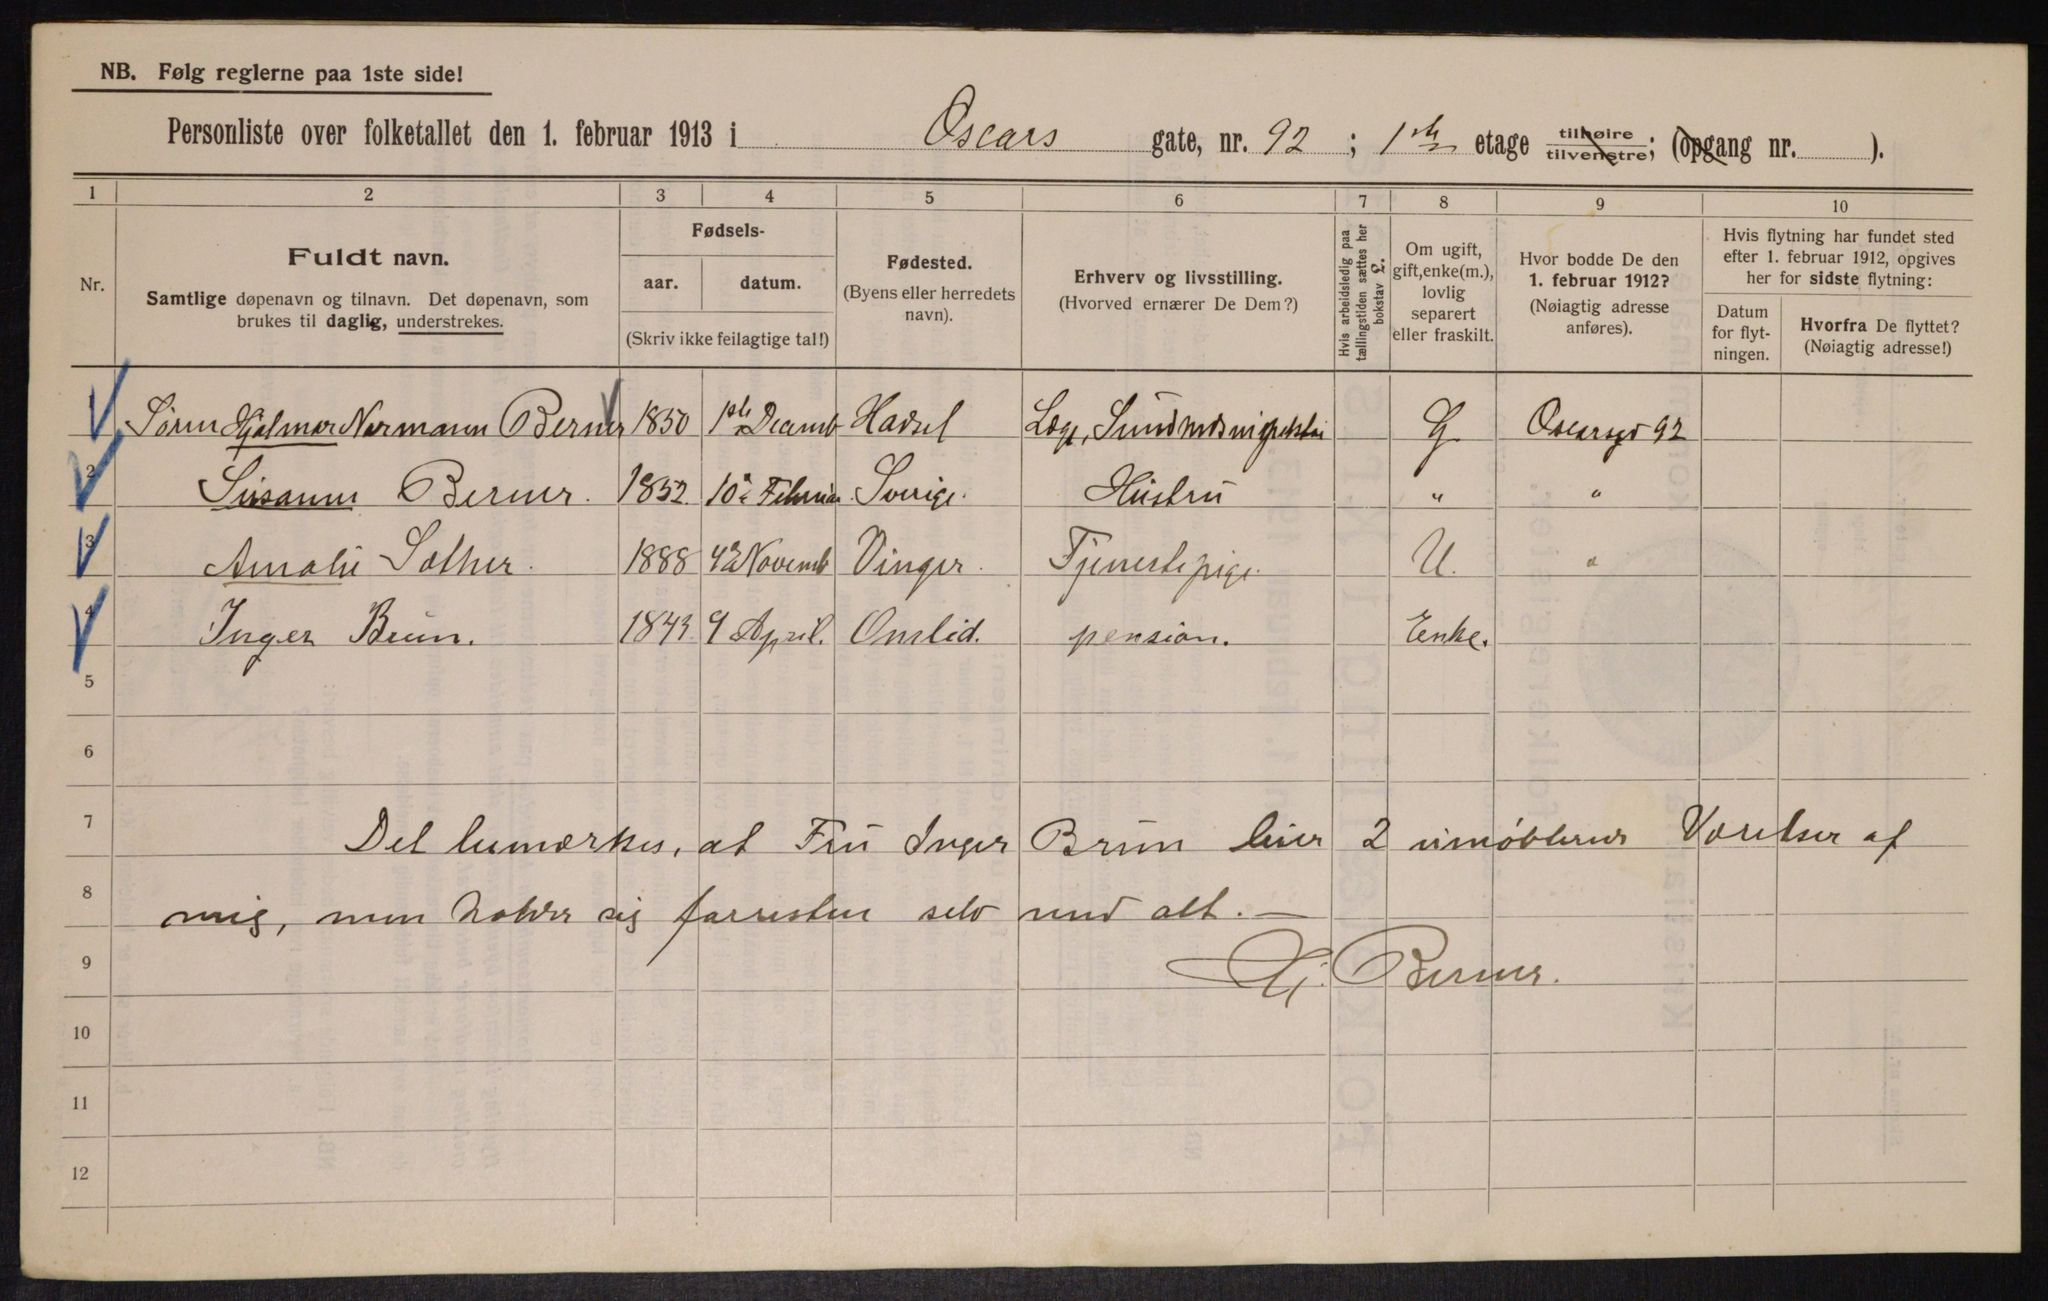 NB. Følg reglerne paa 1ste side!
Personliste over folketallet den 1. februar 1913 i Oscars gate, nr. 92 ; 1ste etage tilhøire tilvenstre; (opgang nr. ).
1 2 3 4 5 6 7 8 9 10
Nr.
Fuldt navn.
Samtlige døpenavn og tilnavn. Det døpenavn, som
brukes til daglig, understrekes.
Fødsels-
aar. datum.
(Skriv ikke feilagtige tal!)
Fødested.
(Byens eller herredets
navn).
Erhverv og livsstilling.
(Hvorved ernærer De Dem?)
Hvis arbeidsledig paa
tællingstiden sættes her
bokstav L.
Om ugift,
gift, enke(m.),
lovlig
separert
eller fraskilt.
Hvor bodde De den
1. februar 1912?
(Nøiagtig adresse
anføres).
Hvis flytning har fundet sted
efter 1. februar 1912, opgives
her for sidste flytning:
Datum
for flyt-
ningen.
Hvorfra De flyttet?
(Nøiagtig adresse!)
Søren Hjalmar Normann Berner 1850 1ste Decemb Hadsel Læge, Sundhedsinspektør G Oscarsgd 92
2 Susanne Berner. 1852 10de Februar. Sverige. Hustru " "
3 Amalie Sother. 1888 4de Novemb Vinger. Tjenestepige. U. "
4 Inger Brun. 1843 9 April. Omlid. pension. Enke.
5
6
7 Det bemærkes, at Fru Inger Brun leier 2 umøblerede Værelser af
8 mig, men holder sig forresten selv med alt. —
9 Hj. Berner.
10
11
12